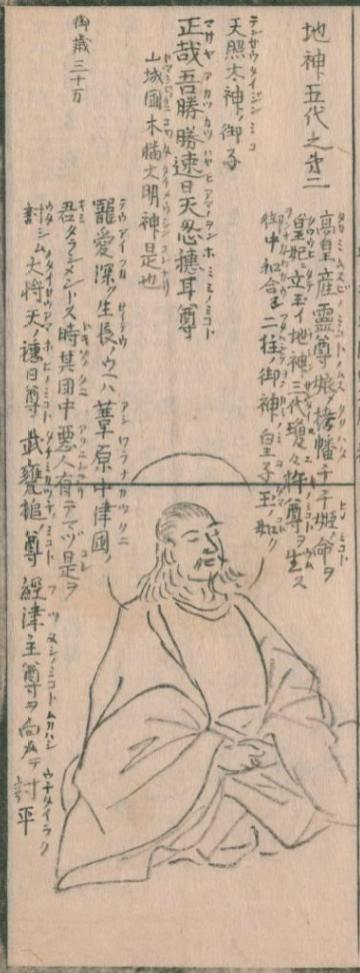 地神五代之第二
高皇産霊尊ノ娘ノ栲幡千千姫ノ命ヲ
皇妃ニ立玉イ地神三代瓊々杵ノ尊ヲ生ス
御中和合玉二柱ノ御神ノ皇子玉ノ如ク
天照太神ノ御子
正哉吾勝勝速日天忍穂耳尊
山城國木幡大明神是也
寵愛深ク生長ノウハ葦原中津國ノ
君タラシメントス時其国中悪人有テマヅ是ヲ
討シム大将天ノ穂日尊武甕槌尊經津主尊ヲ向ハシテ討平
御歳三十万